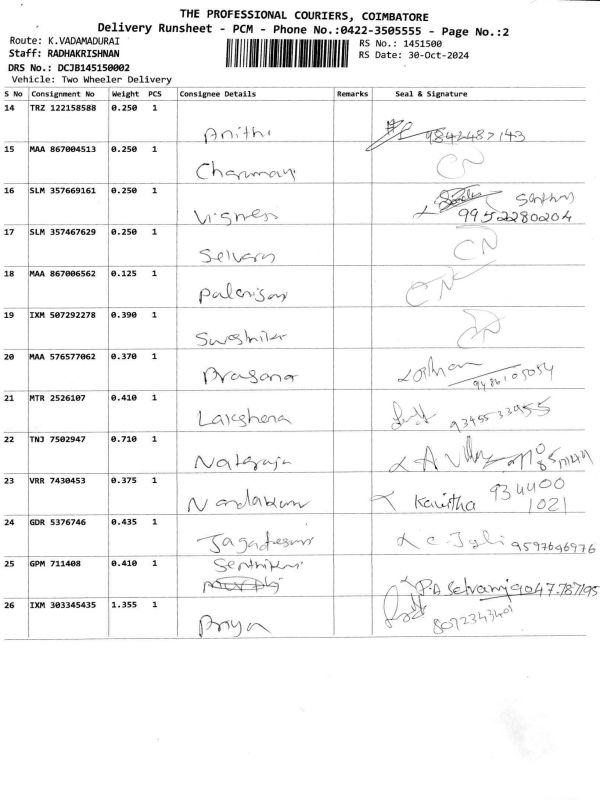 THE PROFESSIONAL COURIERS, COIMBATORE
Delivery Runsheet - PCM - Phone No.:0422-3505555 - Page No.:2
Route: K.VADAMADURAI
RS No.: 1451500
Staff: RADHAKRISHNAN
RS Date: 30-Oct-2024
DRS No.: DCJB145150002
Vehicle: Two Wheeler Delivery
S No Consignment No Weight PCS Consignee Details Remarks Seal & Signature
14 TRZ 122158588 0.250 1
Anithi 9842487143
15 MAA 867004513 0.250 1
CN
16 SLM 357669161 0.250 1
Vigness 9952280204
17 SLM 357467629 0.250 1
Selvam CN
18 MAA 867006562 0.125 1
Palanisam CN
19 IXM 507292278 0.390 1
CN
20 MAA 576577062 0.370 1
Prasana
21 MTR 2526107 0.410 1
Lakshena 9345533955
22 TNJ 7502947 0.710 1
Nataraja
23 VRR 7430453 0.375 1
Nandakum Kavitha 934400
1021
24 GDR 5376746 0.435 1
Jagadeesan 9597646976
25 GPM 711408 0.410 1
P.A Selvaraj 9047787195
26 IXM 303345435 1.355 1
Priya 8072343401